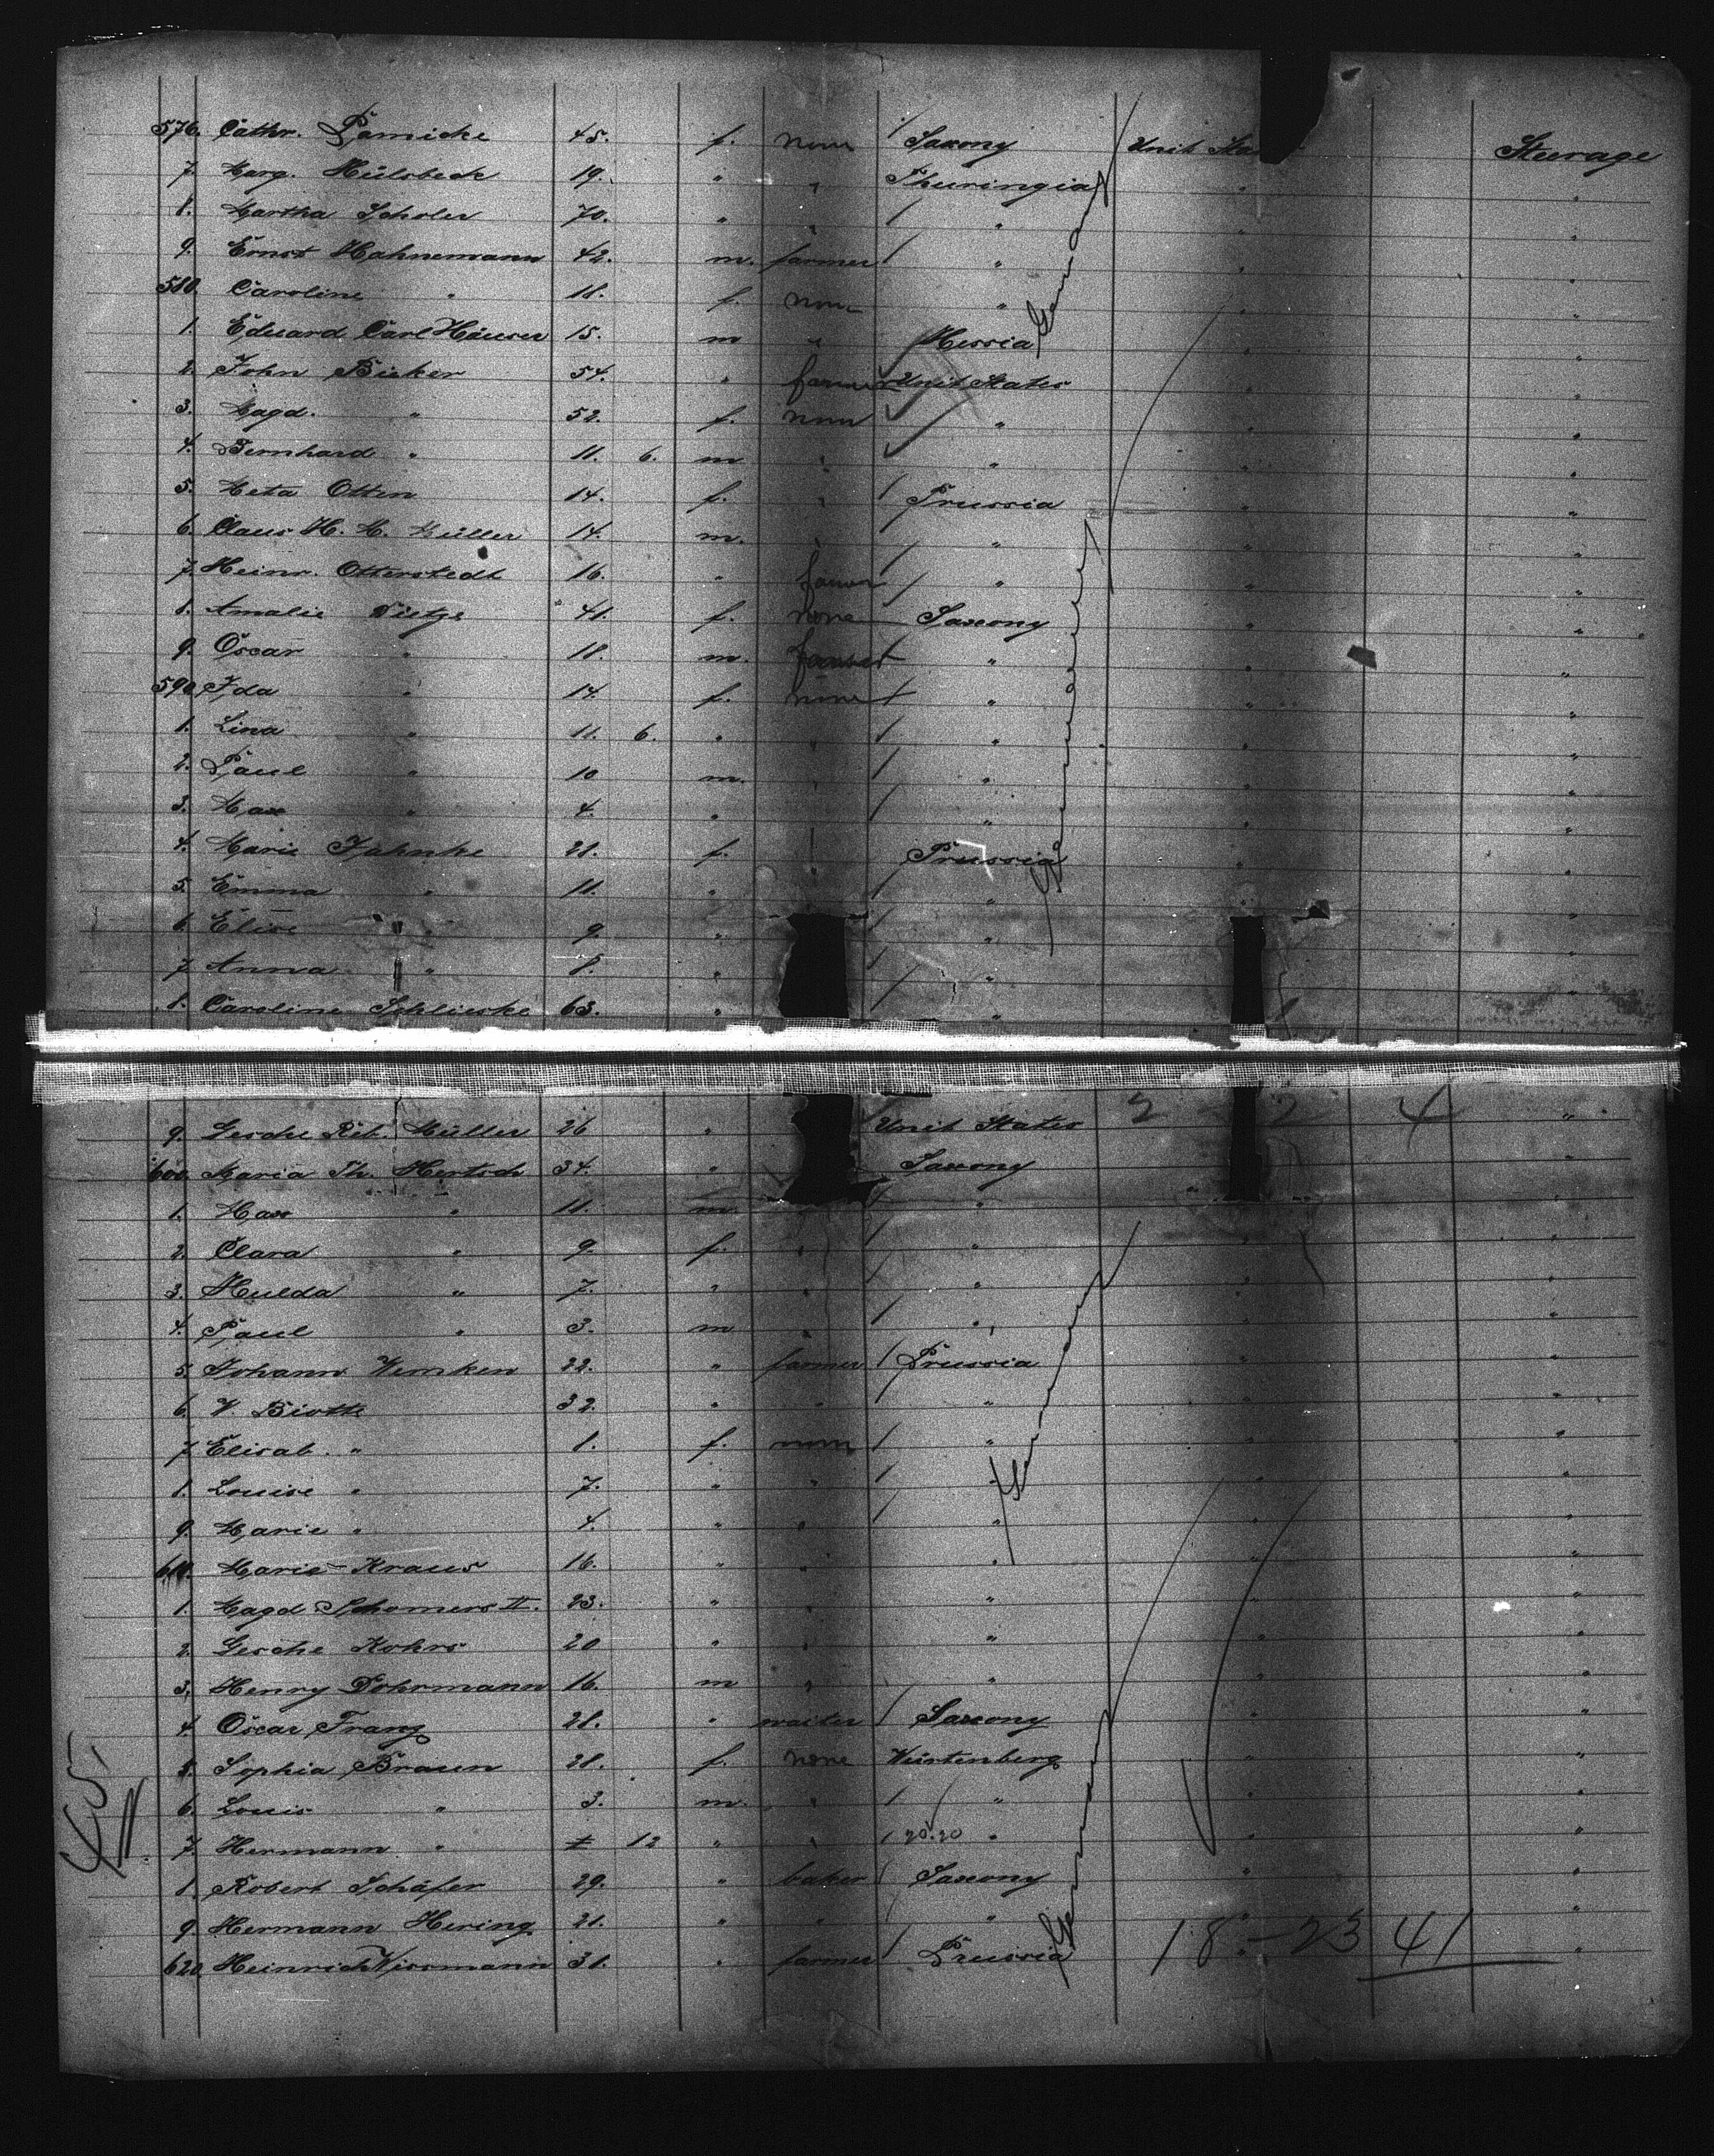 576. Cathr. Pamicke 45. f. none / Saxony Unit. Sta Steerage
7. Marg. Mülsbeck 19. " " Thuringia " "
8. Martha Scholer 70. " " / " " "
9. Ernst Hahnemann 42. m. farmer / " " "
580. Caroline " 18. f. none " " "
1. Eduard Carl Häuser 15. m " Hessia " "
2. John Bieker 54. " farmer Unit. States " "
3. Magd. " 52. f. none " " "
4. Bernhard " 11. 6. m " " " "
5. Meta Otten 14. f. " / Prussia " "
6. Claus H. M. Müller 14. m. " / " " "
7. Heinr. Otterstedt 16. " farmer / " " "
8. Amalie Tietze 41. f. none Saxony " "
9. Oscar " 18. m. farmer " " "
590. Ida " 14. f. none / " " "
1. Lina " 11. 6. " " / " " "
2. Paul " 10 m. " / " " "
3. Max " 4. " " / " " "
4. Marie Jahnke 28. f. " Prussia " "
5. Emma " 11. " " / " " "
6. Elise " 9. " / " "
7. Anna " 8. " / " "
8. Caroline Schlieske 63. " / " "
9. Gesche Reb. Müller 26 " Unit. States 2 2 4 "
600. Maria Th. Hertsch 34. " Saxony " "
1. Max " 11. m. / " " "
2. Clara " 9. f. " / " " "
3. Hulda " 7. " " / " " "
4. Paul " 3. m " / " " "
5. Johann Wemken 22. " farmer / Prussia " "
6. W. Biotte 32. " " " " "
7. Elisab. " 8. f. none / " " "
8. Louise " 7. " " / " " "
9. Marie " 4. " " / " " "
610. Marie Kraus 16. " " " " "
1. Magd Schomers II. 23. " " " " "
2. Gesche Kohrs 20 " " " " "
3. Henry Dohrmann 16. m " " " "
4. Oscar Franz 28. " waiter / Saxony " "
5. Sophia Braun 28. f. none Würtenberg " "
6. Louis " 3. m. " / " " "
7. Hermann " 12 " " / 20.20 " " "
8. Robert Schäfer 29. " baker / Saxony " "
9. Hermann Hering 21. " " " " "
620. Heinrich Wissmann 31. " farmer / Prussia " "
18 - 23 41
Germany
Germany
Germany
Germany
45